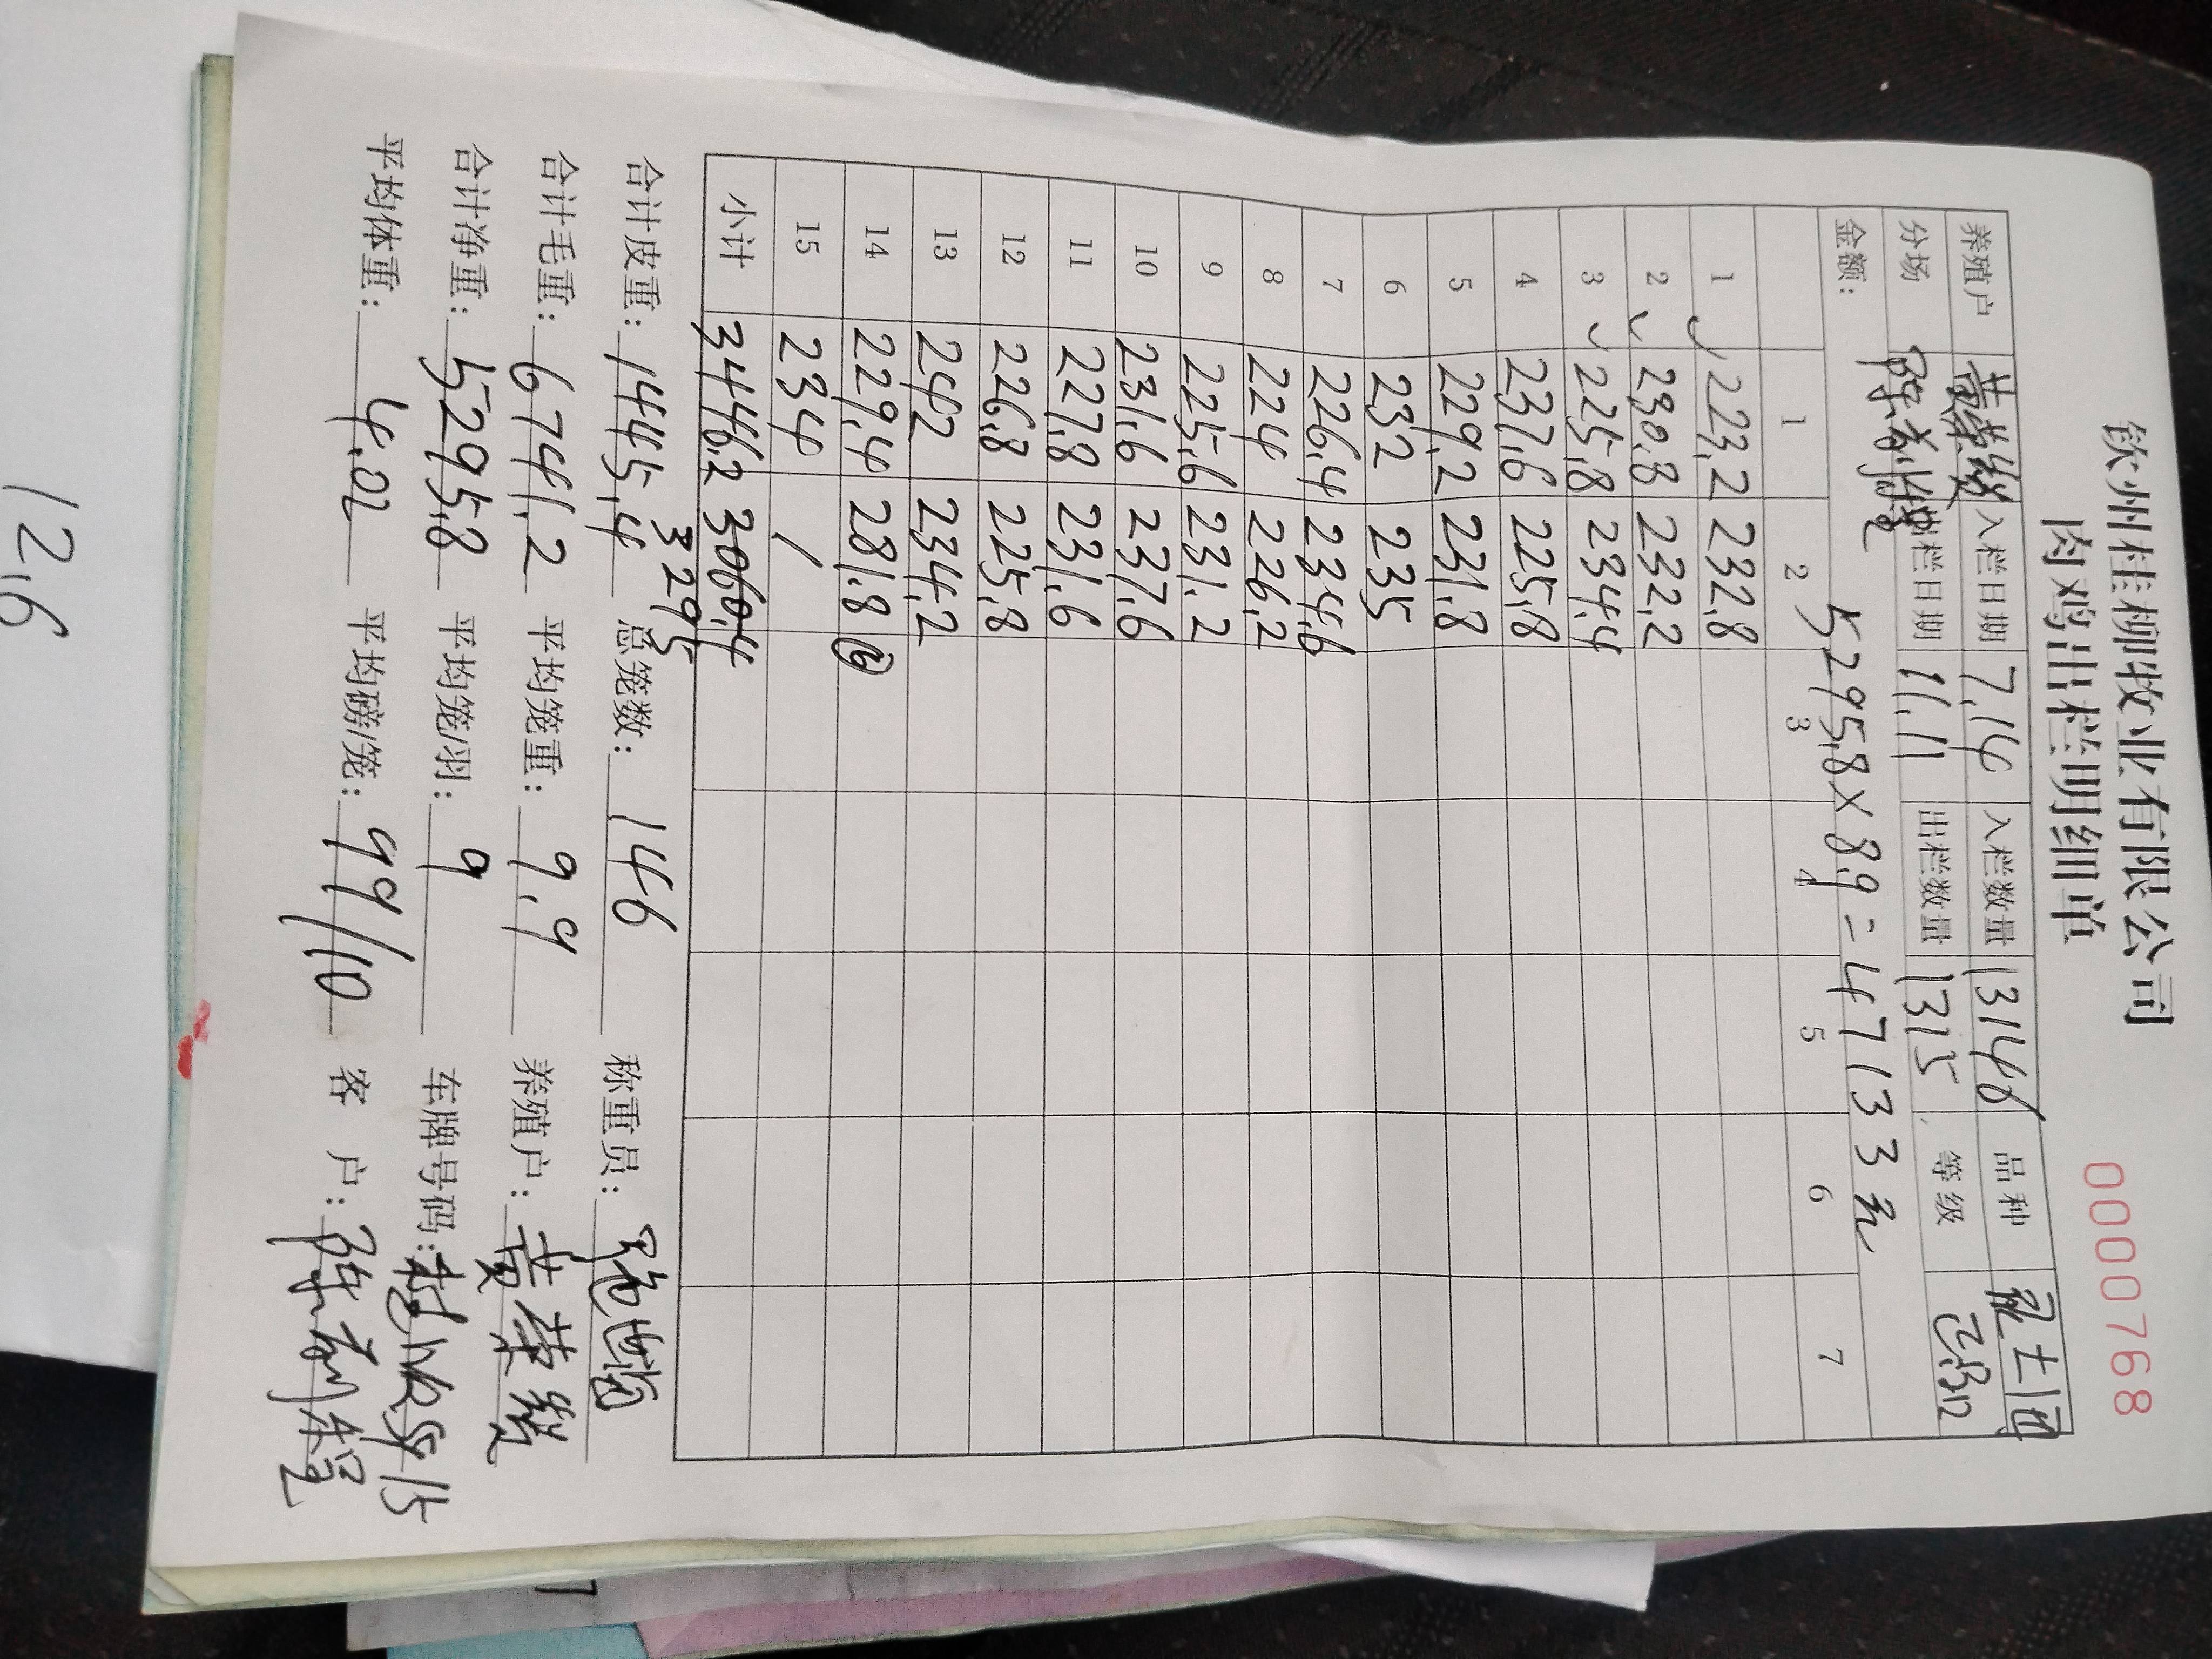 钦州桂柳牧业有限公司
肉鸡出栏明细单
0000768
养殖户 黄荣级 入栏日期 7.14 入栏数量 13148 品种 土
分场 出栏日期 11.11 出栏数量 1315 等级
金额: 5295.8×8.9=47133元
1 2 3 4 5 6 7
1 223.2 232.8
2 230.8 232.2
3 225.8 234.4
4 237.6 225.8
5 229.2 231.8
6 232 235
7 226.4 234.6
8 224 226.2
9 225.6 231.2
10 231.6 237.6
11 227.8 231.6
12 226.8 225.8
13 242 234.2
14 229.4 281.8 ⑥
15 234 /
小计 3446.2 3060.4 3295
合计皮重: 1445.4 总笼数: 146 称重员:
合计毛重: 6741.2 平均笼重: 9.9 养殖户: 黄荣级
合计净重: 5295.8 平均笼/羽: 9 车牌号码:
平均体重: 4.02 平均磅/笼: 99/10 客户: 陈
12.6